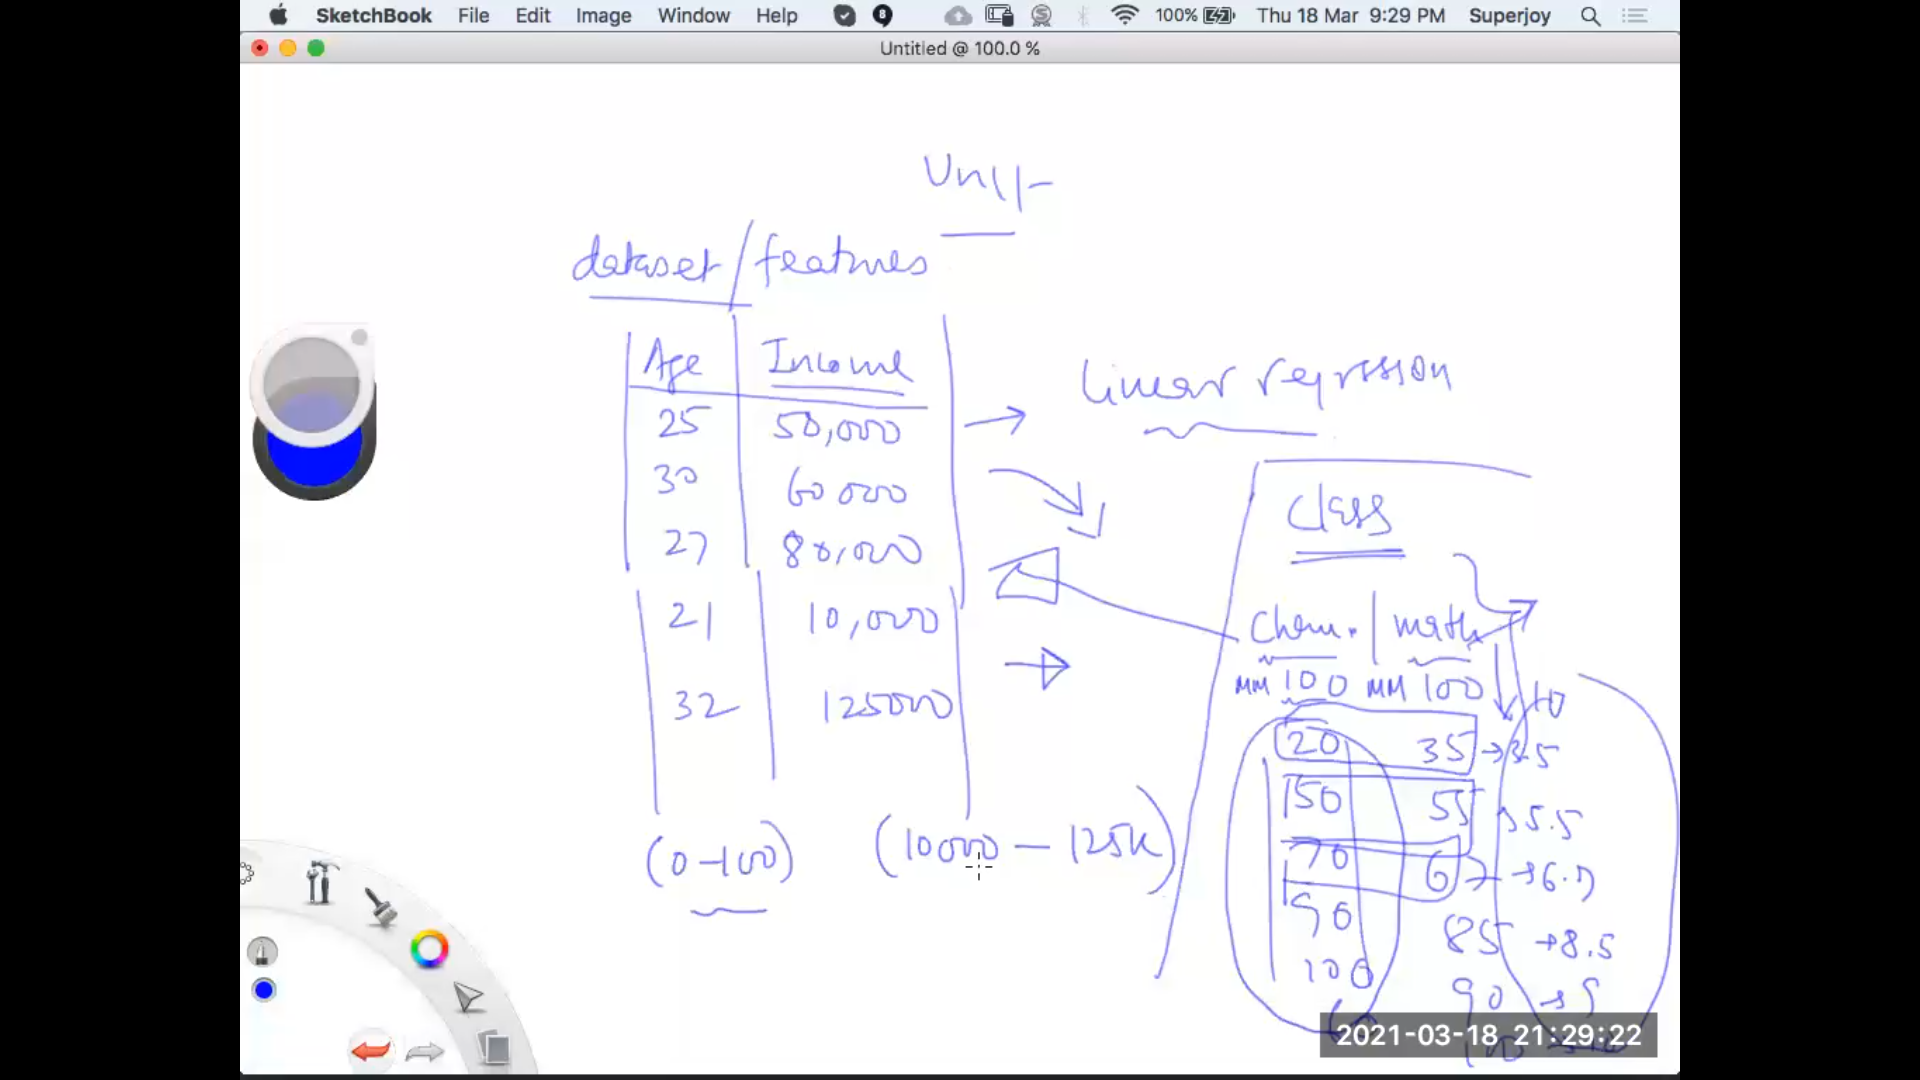 SketchBook File Edit Image Window Help 8 100% Thu 18 Mar 9:29 PM Superjoy
Untitled @ 100.0 %
Unit
dataset / features
Age Income
25 50,000
30 60000
27 80,000
21 10,000
32 125000
(0-100) (10000 - 125k)
linear regression
class
chem. | math
MM 100 MM 100 10
20 35 → 3.5
50 55 → 5.5
70 67 → 6.7
90 85 → 8.5
100 90 → 9
2021-03-18 21:29:22